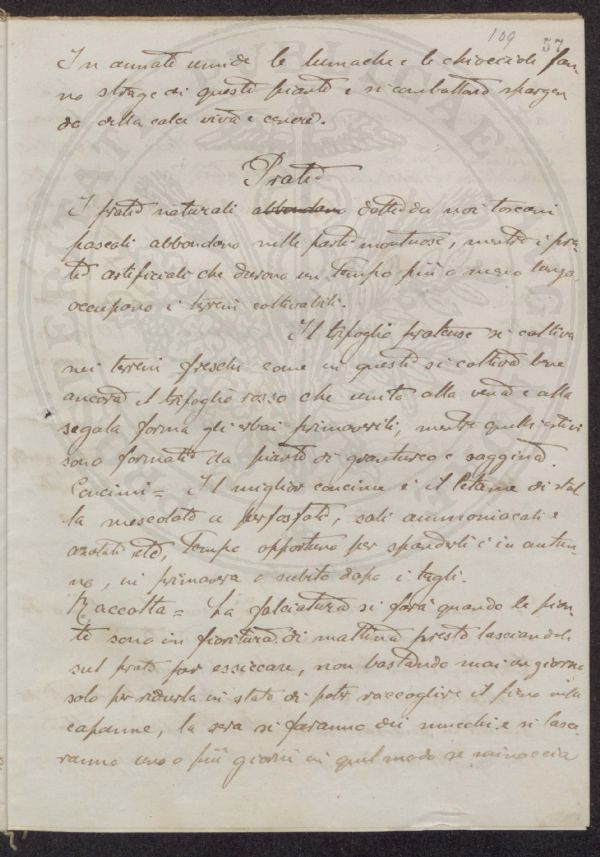 109 57
In annate umide le lumache e le chiocciole fan-
no strage di queste piante e si combattono spargen
do della calce viva e cenere.
Prati
I prati naturali abbondano detti da noi toscani
pascoli abbondano nelle parti montuose, mentre i pra-
ti artificiali che durano un tempo più o meno lungo
occupano i terreni coltivabili.
Il trifoglio pratense si coltiva
nei terreni freschi come in questi si coltiva bene
ancora il trifoglio rosso che unito alla vena e alla
segala forma gli erbai primaverili, mentre quelli estivi
sono formati da piante di granturco e saggina.
Concimi = Il miglior concime è il letame di stal
la mescolato a perfosfati, sali ammoniacali e
azotati etc, tempo opportuno per spanderli è in autun-
no, in primavera o subito dopo i tagli.
Raccolta = La falciatura si farà quando le pian-
te sono in fioritura di mattina presto lasciandole
sul prato per essiccare, non bastando mai un giorno
solo per ridurla in stato di poter raccogliere il fieno nelle
capanne, la sera si faranno dei mucchi e si lasce
ranno uno o più giorni in quel modo se minaccia
PUBLICAE